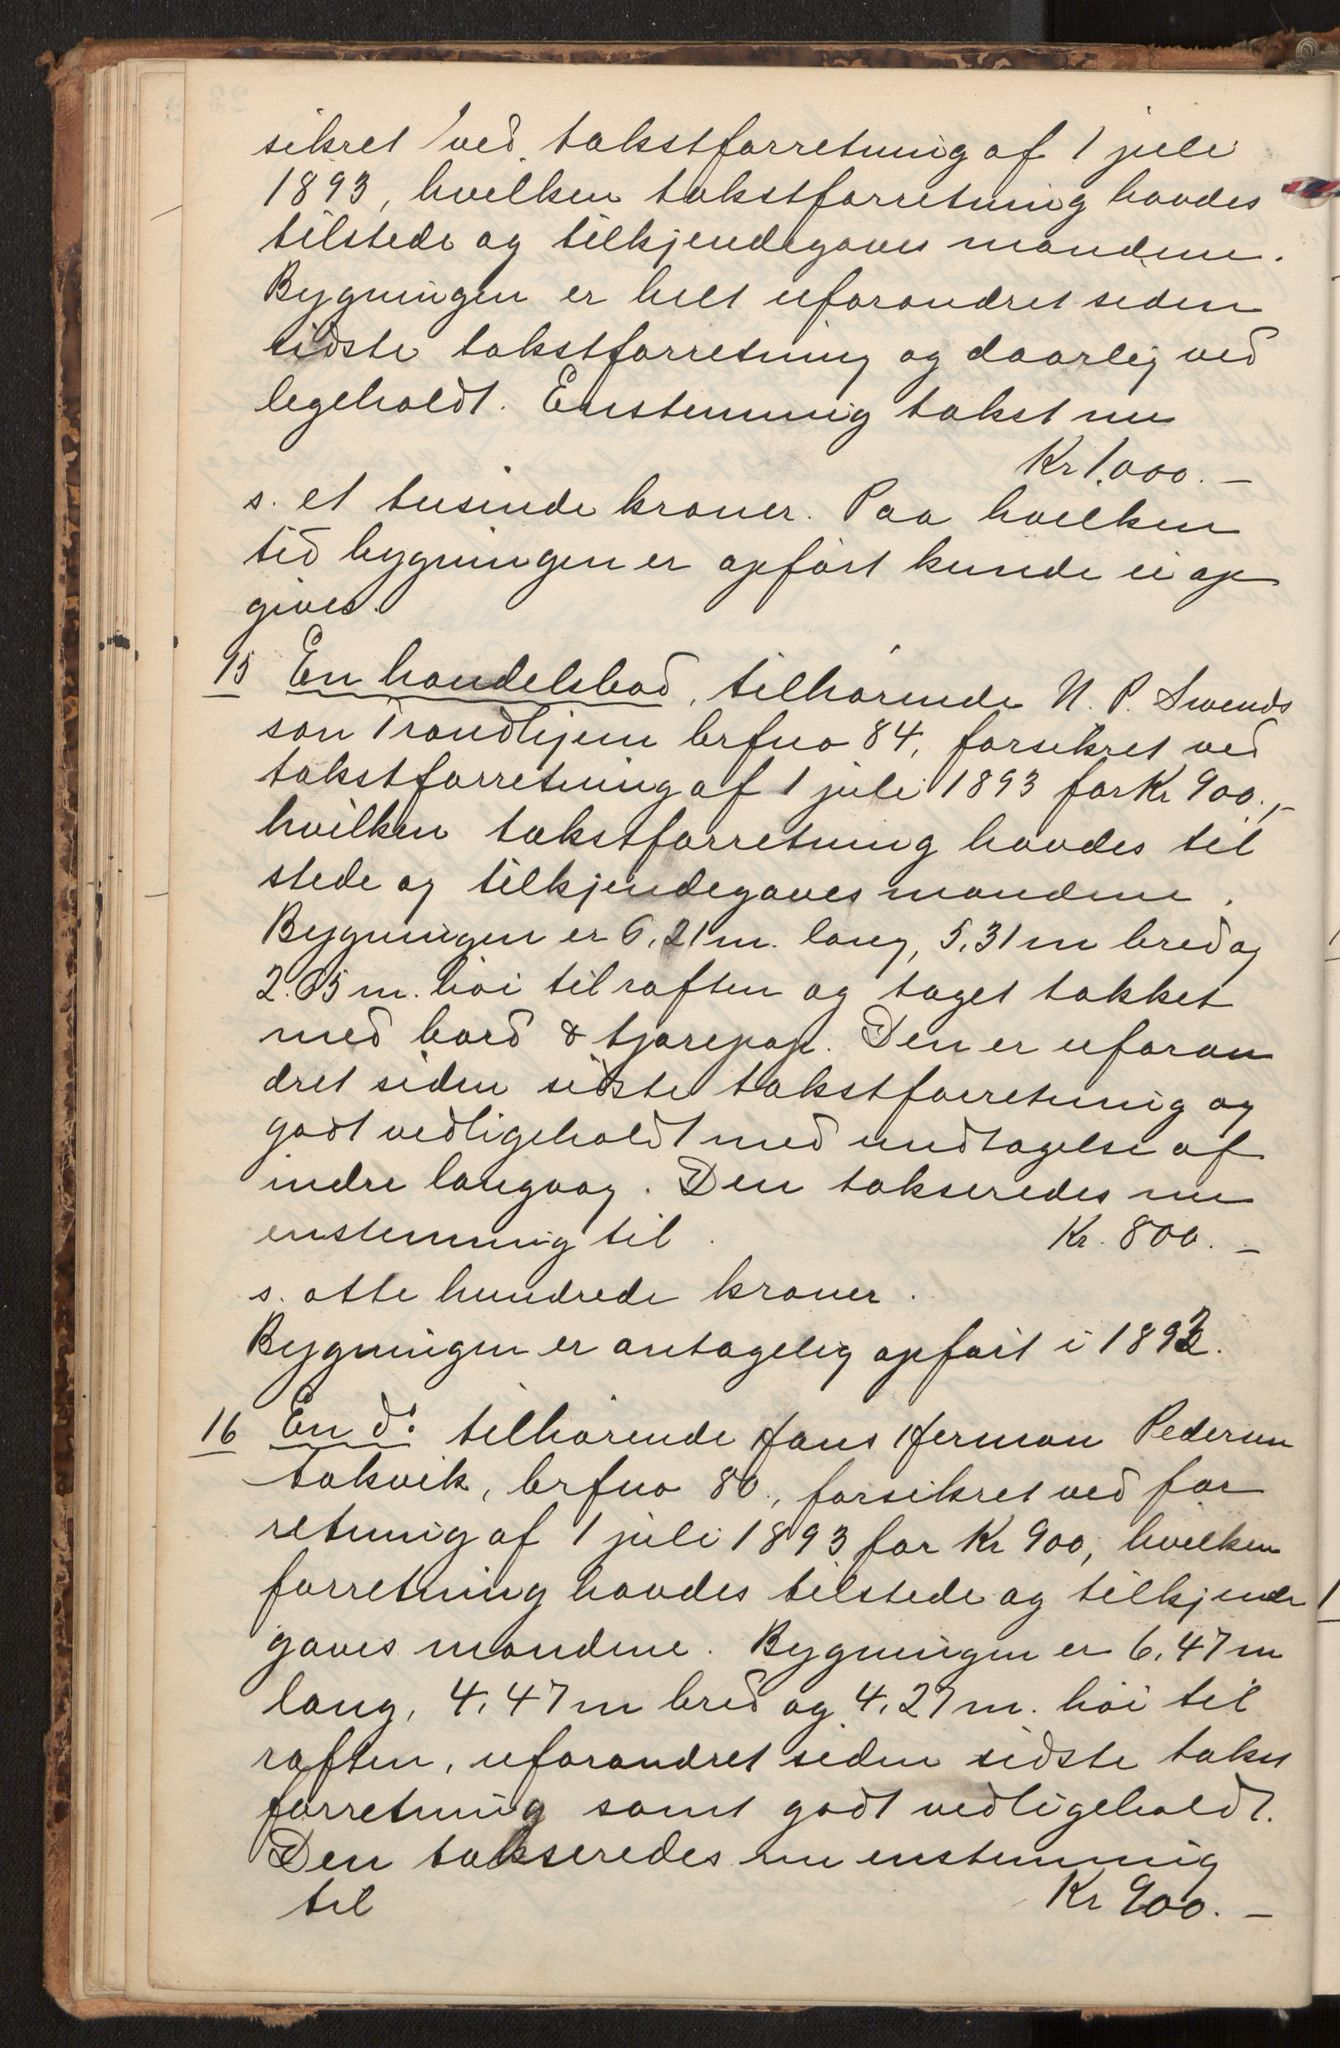 sikret ved takstforretning af 1 juli
1893, hvilken takstforretning havdes
tilstede og tilkjendegaves mændene.
Bygningen er helt uforandret siden
sidste takstforretning og daarlig ved
legeholdt. Enstemmig takst nu
Kr 1.000.–
s. et tusinde kroner. Paa hvilken
tid bygningen er opført kunde ei op
gives.
15 En handelsbod, tilhørende N. P. Svends
søn Trondhjem brfno 84, forsikret ved
takstforretning af 1 juli 1893 for Kr 900.,–
hvilken takstforretning havdes til
stede og tilkjendegaves mændene.
Bygningen er 6,21 m. lang, 5,31 m bred og
2.65 m. høi til raften og taget tækket
med bord & tjærepap. Den er uforan
dret siden sidste takstforretning og
godt vedligeholdt med undtagelse af
indre langvæg. Den takseredes nu
enstemmig til Kr. 800.–
s. otte hundrede kroner.
Bygningen er antagelig opført i 1892.
16 En do tilhørende Jans Herman Pedersen
Takvik, brfno 80., forsikret ved for
retning af 1 juli 1893 for Kr 900, hvilken
forretning havdes tilstede og tilkjende
gaves mændene. Bygningen er 6,47 m
lang, 4,47 m bred og 4,27 m. høi til
raften, uforandret siden sidste takst
forretning samt godt vedligeholdt.
Den takseredes nu enstemmig
til Kr 900.–